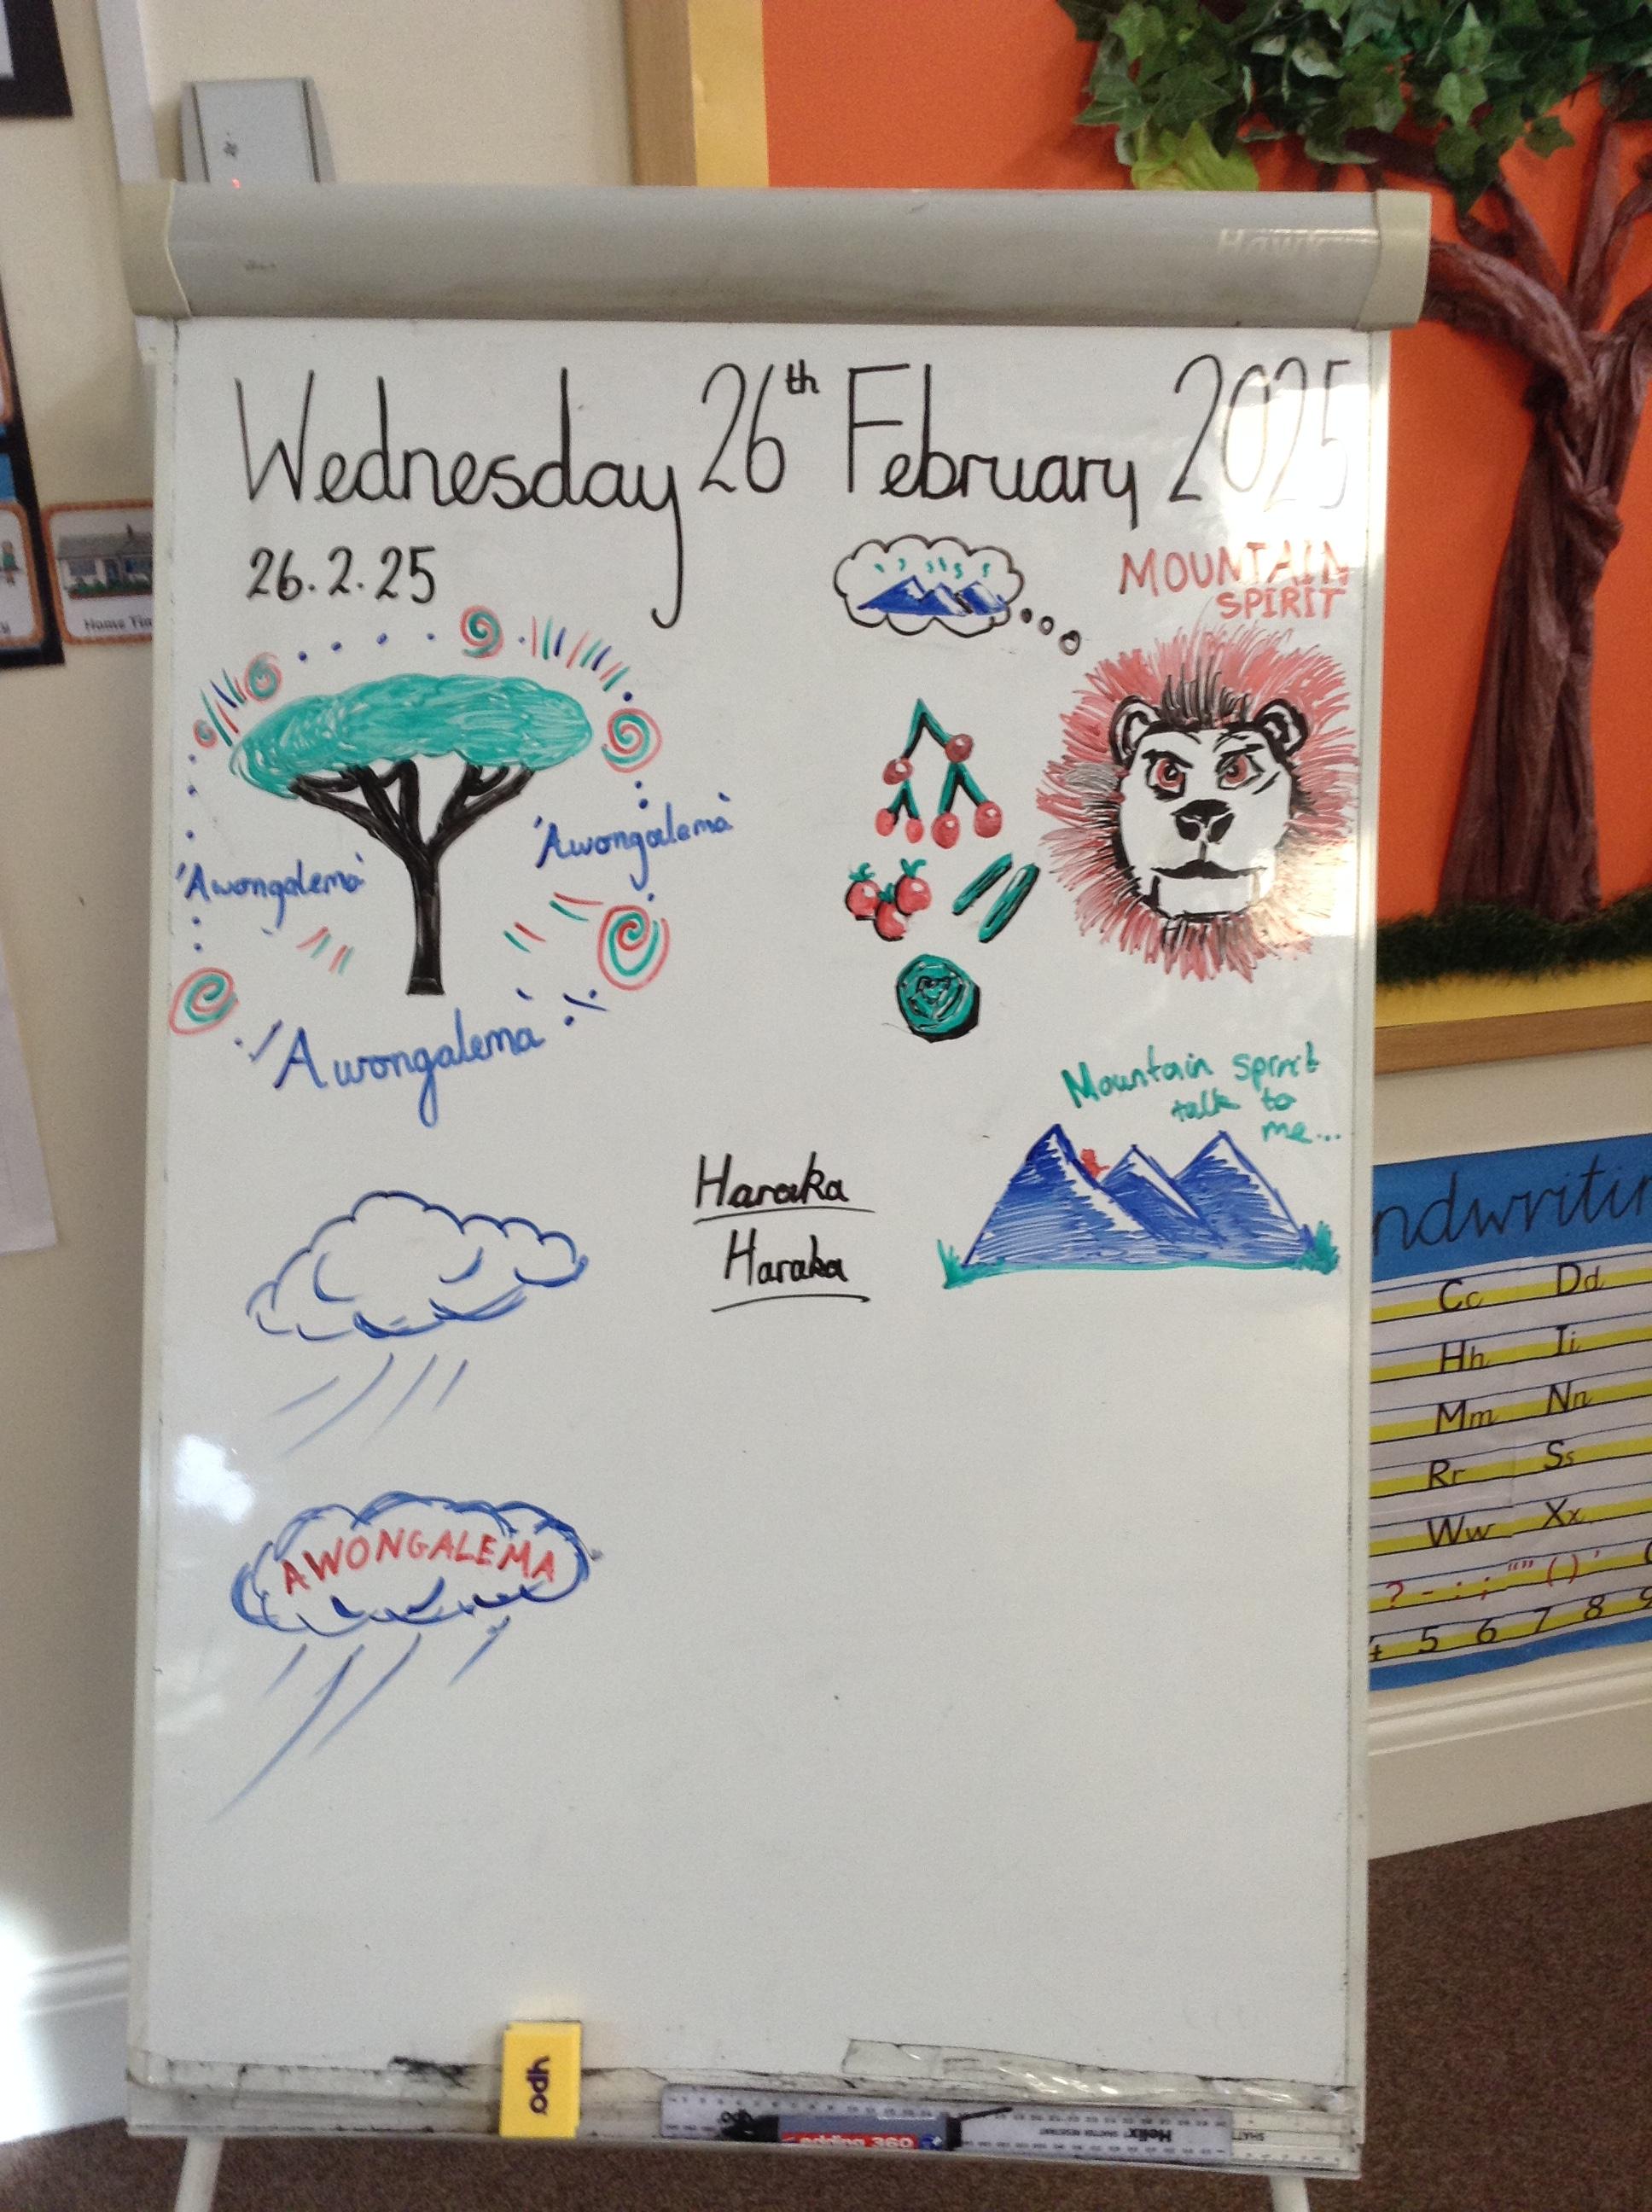 Wednesday 26th February 2025
26.2.25
MOUNTAIN
SPIRIT
'Awongalema'
'Awongalema'
'Awongalema'
Mountain spirit
talk to
me...
Haraka
Haraka
AWONGALEMA
Home Tim
ndwritin
Cc Dd
Hh Ii
Mm Nn
Rr Ss
Ww Xx
? - : ; "" ( ) '
4 5 6 7 8 9
edding 360
Helix
SHATTER RESISTANT